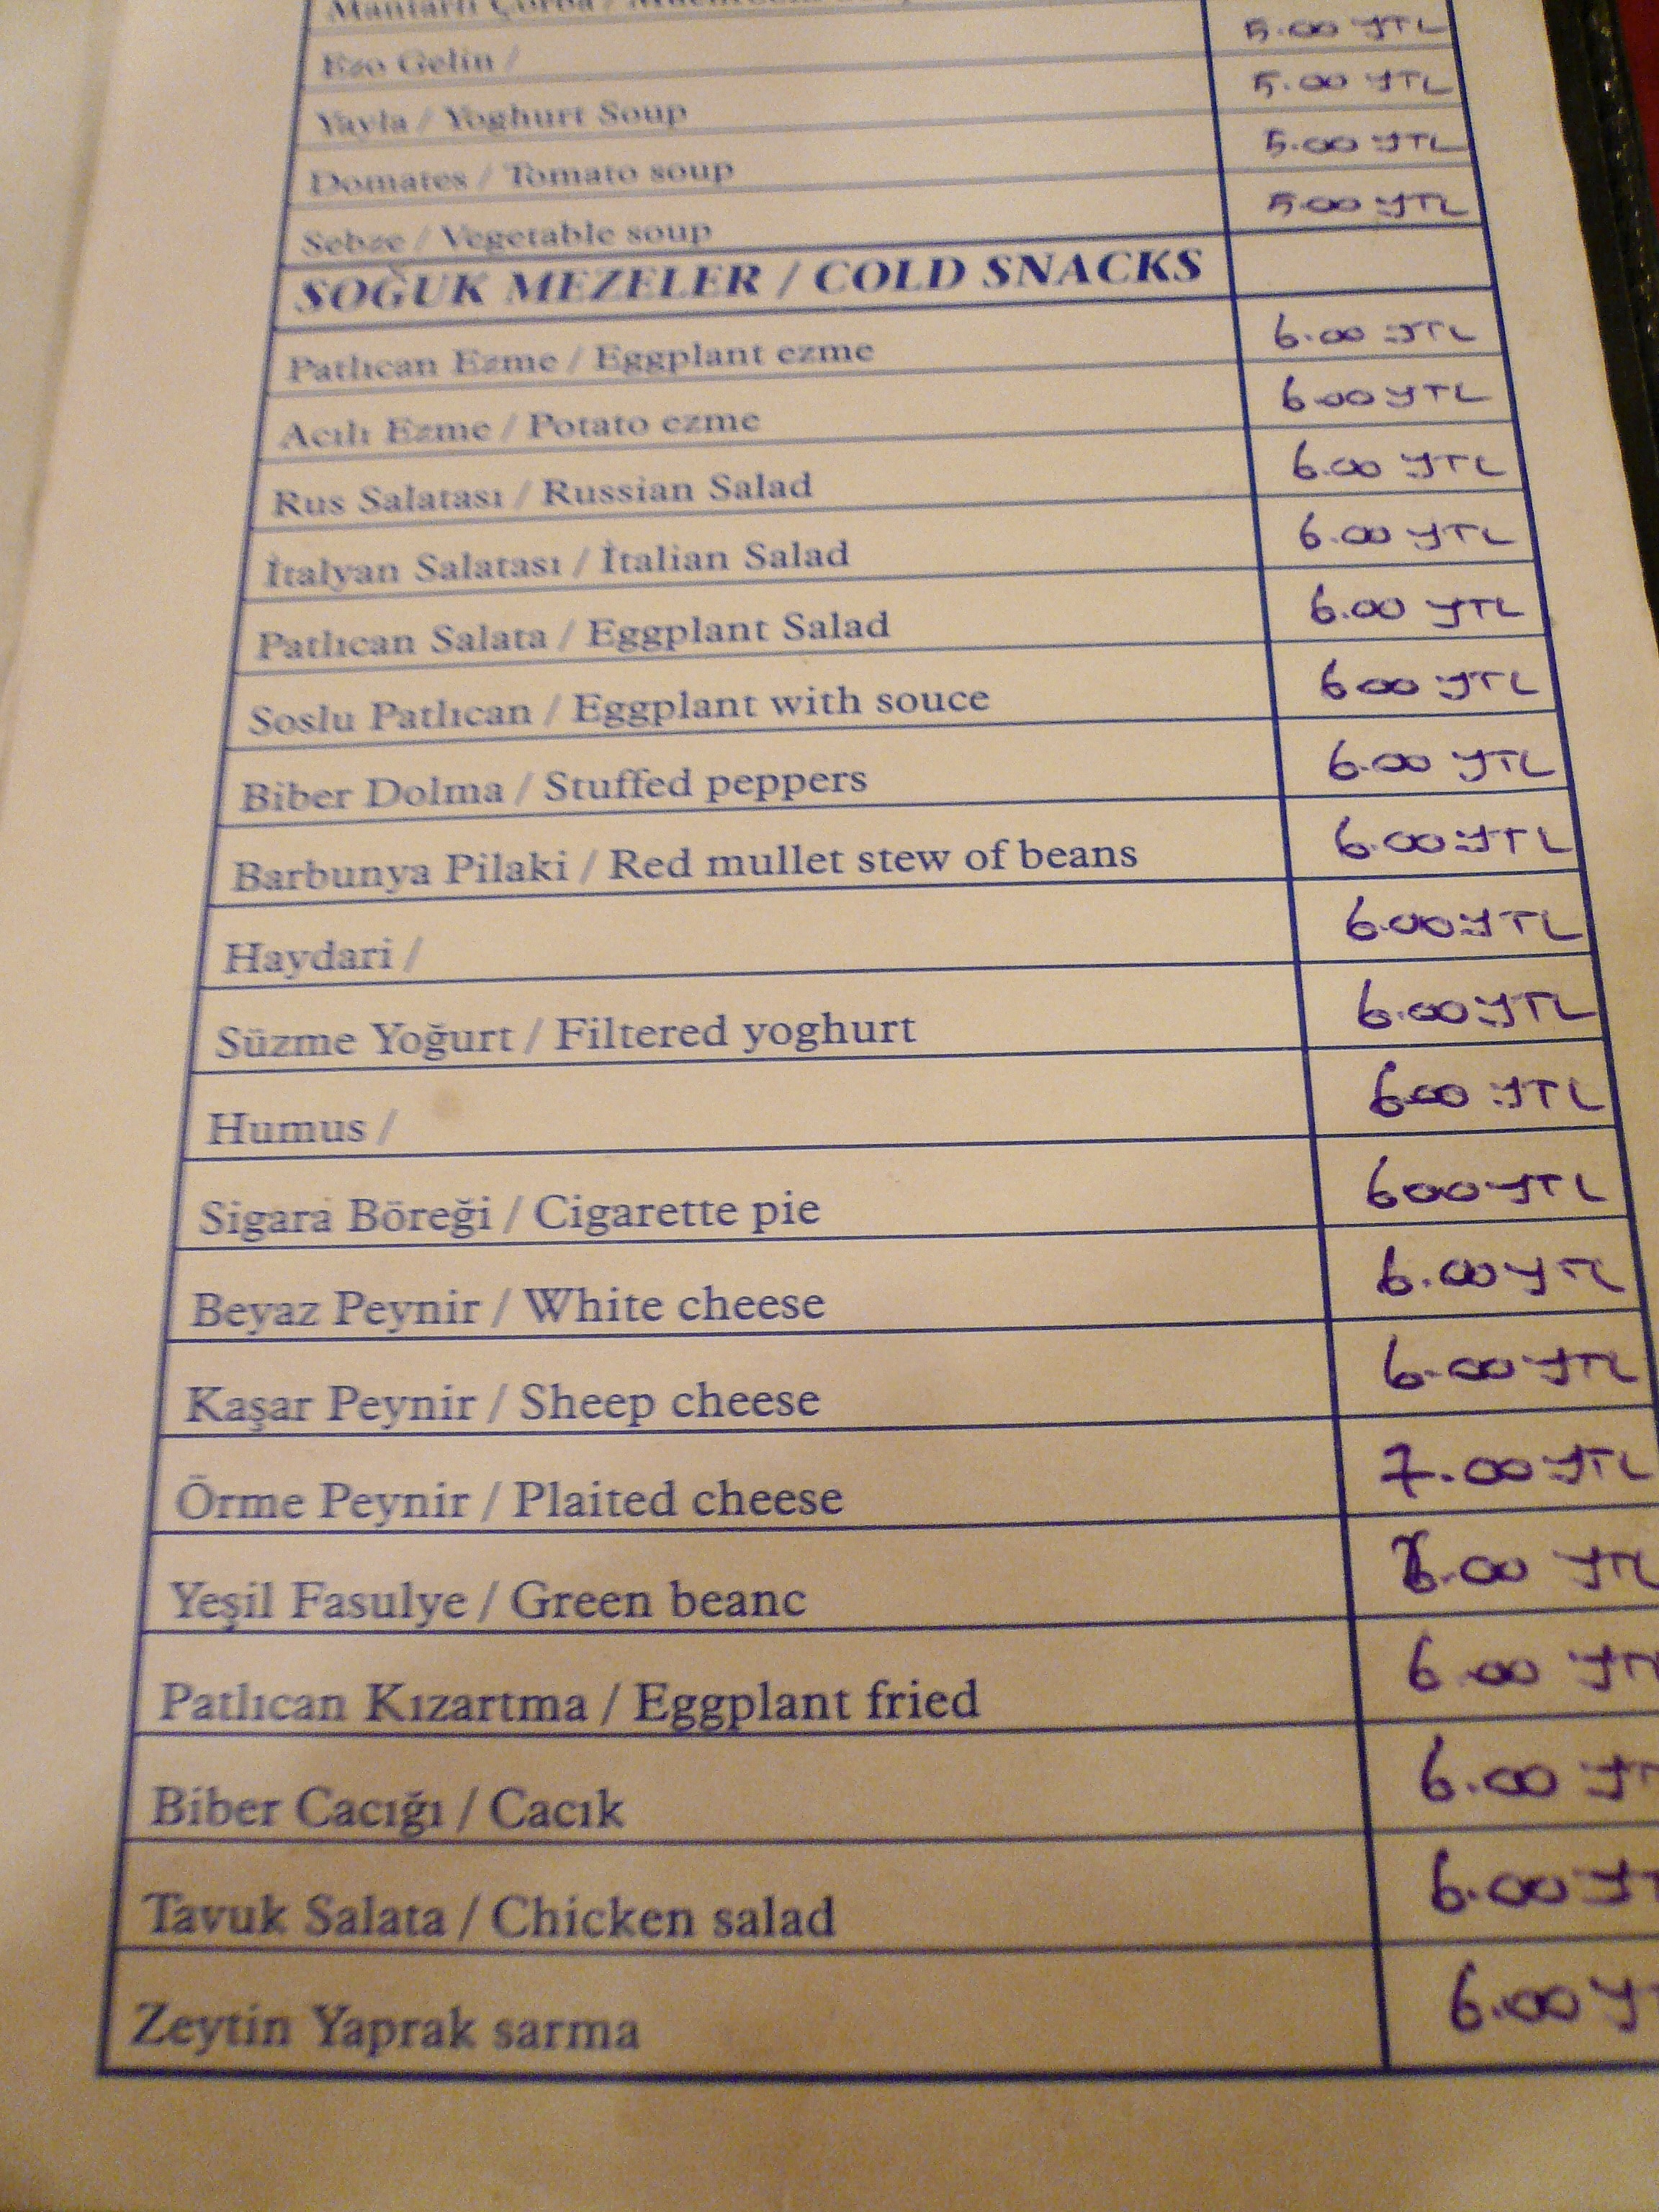 Mantarlı Çorba /
Ezo Gelin / 5.00 YTL
Yayla / Yoghurt Soup 5.00 YTL
Domates / Tomato soup 5.00 YTL
Sebze / Vegetable soup 5.00 YTL
SOĞUK MEZELER / COLD SNACKS
Patlıcan Ezme / Eggplant ezme 6.00 YTL
Acılı Ezme / Potato ezme 6.00 YTL
Rus Salatası / Russian Salad 6.00 YTL
İtalyan Salatası / İtalian Salad 6.00 YTL
Patlıcan Salata / Eggplant Salad 6.00 YTL
Soslu Patlıcan / Eggplant with souce 6 00 YTL
Biber Dolma / Stuffed peppers 6.00 YTL
Barbunya Pilaki / Red mullet stew of beans 6.00 YTL
Haydari / 6.00 YTL
Süzme Yoğurt / Filtered yoghurt 6.00 YTL
Humus / 6.00 YTL
Sigara Böreği / Cigarette pie 600 YTL
Beyaz Peynir / White cheese 6.00 YTL
Kaşar Peynir / Sheep cheese 6.00 YTL
Örme Peynir / Plaited cheese 7.00 YTL
Yeşil Fasulye / Green beanc 6.00 YTL
Patlıcan Kızartma / Eggplant fried 6.00 YTL
Biber Cacığı / Cacık 6.00 YT
Tavuk Salata / Chicken salad 6.00 YT
Zeytin Yaprak sarma 6.00 Y